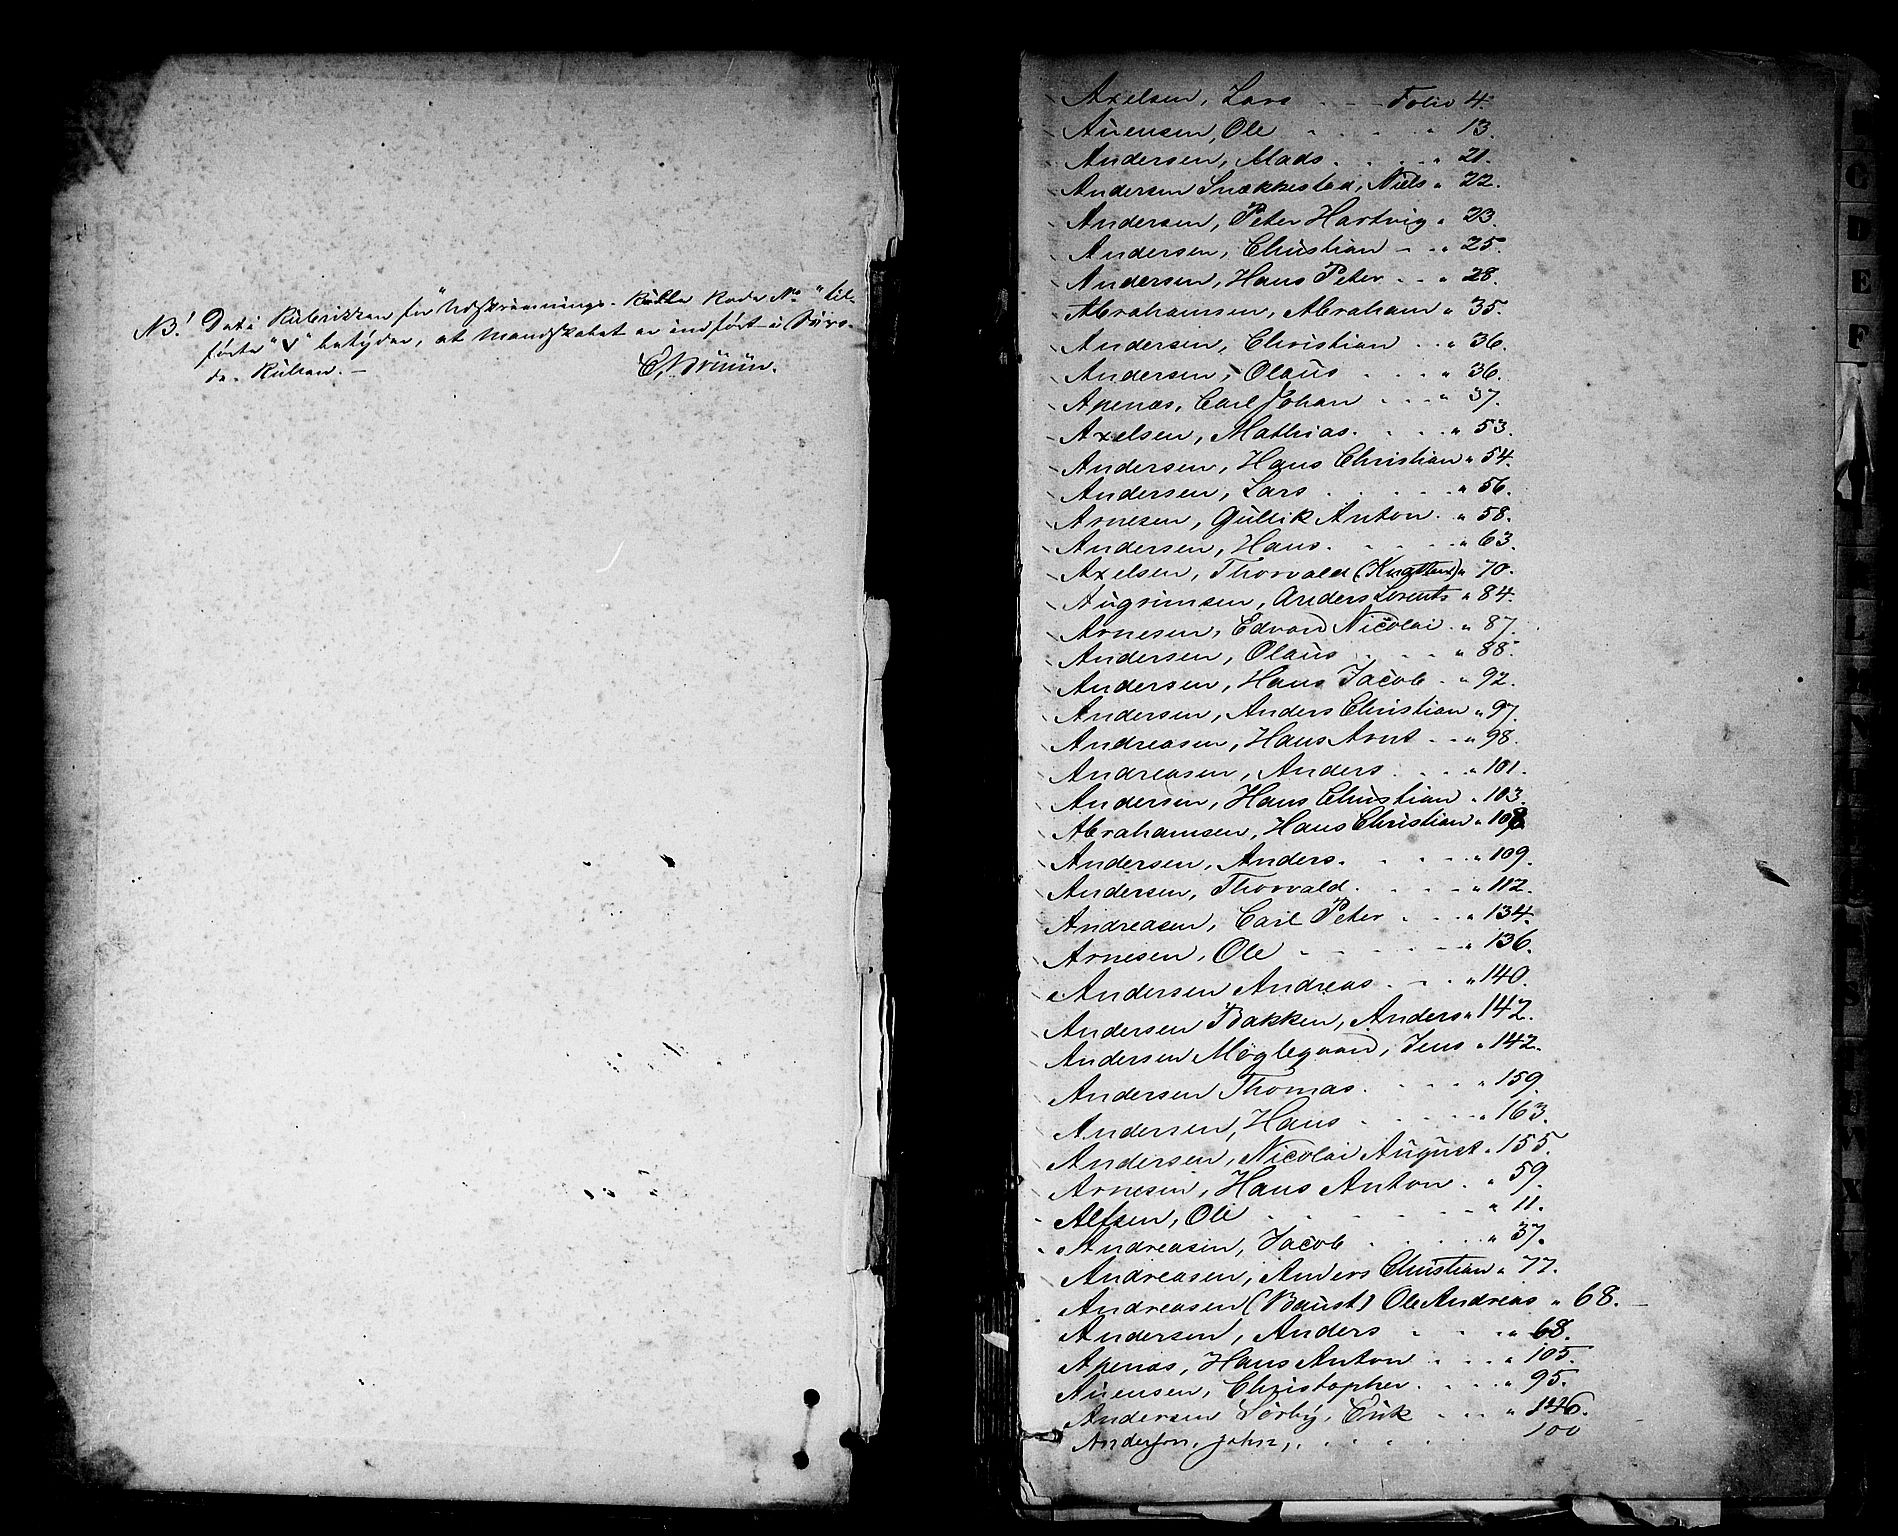 NB! Det i Rubrikken for "Udskrivnings-Rulle Rode No" til-
førte "V" betyder, at Mandskabet er indført i Søro-
de-Rullen. —
C. Bruun.
Axelsen, Lars - - - Folio 4.
Auensen, Ole . . . . " 13.
Andersen, Mads . . . " 21.
Andersen Snækkestad, Niels " 22.
Andersen, Peter Hartvig " 23.
Andersen, Christian - . " 25.
Andersen, Hans Peter - . " 28.
Abrahamsen, Abraham " 35.
Andersen, Christian . . " 36.
Andersen, Olaus . . . " 36.
Apenæs, Carl Johan . . . " 37.
Axelsen, Mathias. . . . " 53.
Andersen, Hans Christian " 54.
Andersen, Lars . . . . . " 56.
Arnesen, Gullik Anton . " 58.
Andersen, Hans. . . . . " 63.
Axelsen, Thorvald (Knatten) " 70.
Augrimsen, Anders Lorents " 84.
Arnesen, Edvard Nicolai . " 87.
Andersen, Olaus . . . . " 88.
Andersen, Hans Jacob . " 92.
Andersen, Anders Christian " 97.
Andreasen, Hans Arnt . . " 98.
Andreasen, Anders . . . " 101.
Andersen, Hans Christian " 103.
Abrahamsen, Hans Christian " 108.
Andersen, Anders. . . . . " 109.
Andersen, Thorvald. . . . - " 112.
Andreasen, Carl Peter . . . " 134.
Arnesen, Ole . . . . . . " 136.
Andersen Andreas . . . " 140.
Andersen Bakken, Anders " 142.
Andersen Møglegaard, Jens " 142.
Andersen Thomas. . . . . " 159.
Andersen, Hans . . . . . " 163.
Andersen, Nicolai August " 155.
Arnesen, Hans Anton . " 59.
Alfsen, Ole . . . . . . . " 11.
Andreasen, Jacob . . . . . " 37.
Andreasen, Anders Christian " 77.
Andreasen (Baust) Ole Andreas " 68.
Andersen, Anders . . . . " 68.
Apenæs, Hans Anton . . . " 105.
Auensen, Christopher. . . . " 95.
Andersen Sørby, Erik . . . " 146.
Anderson, John, . . . . . 100